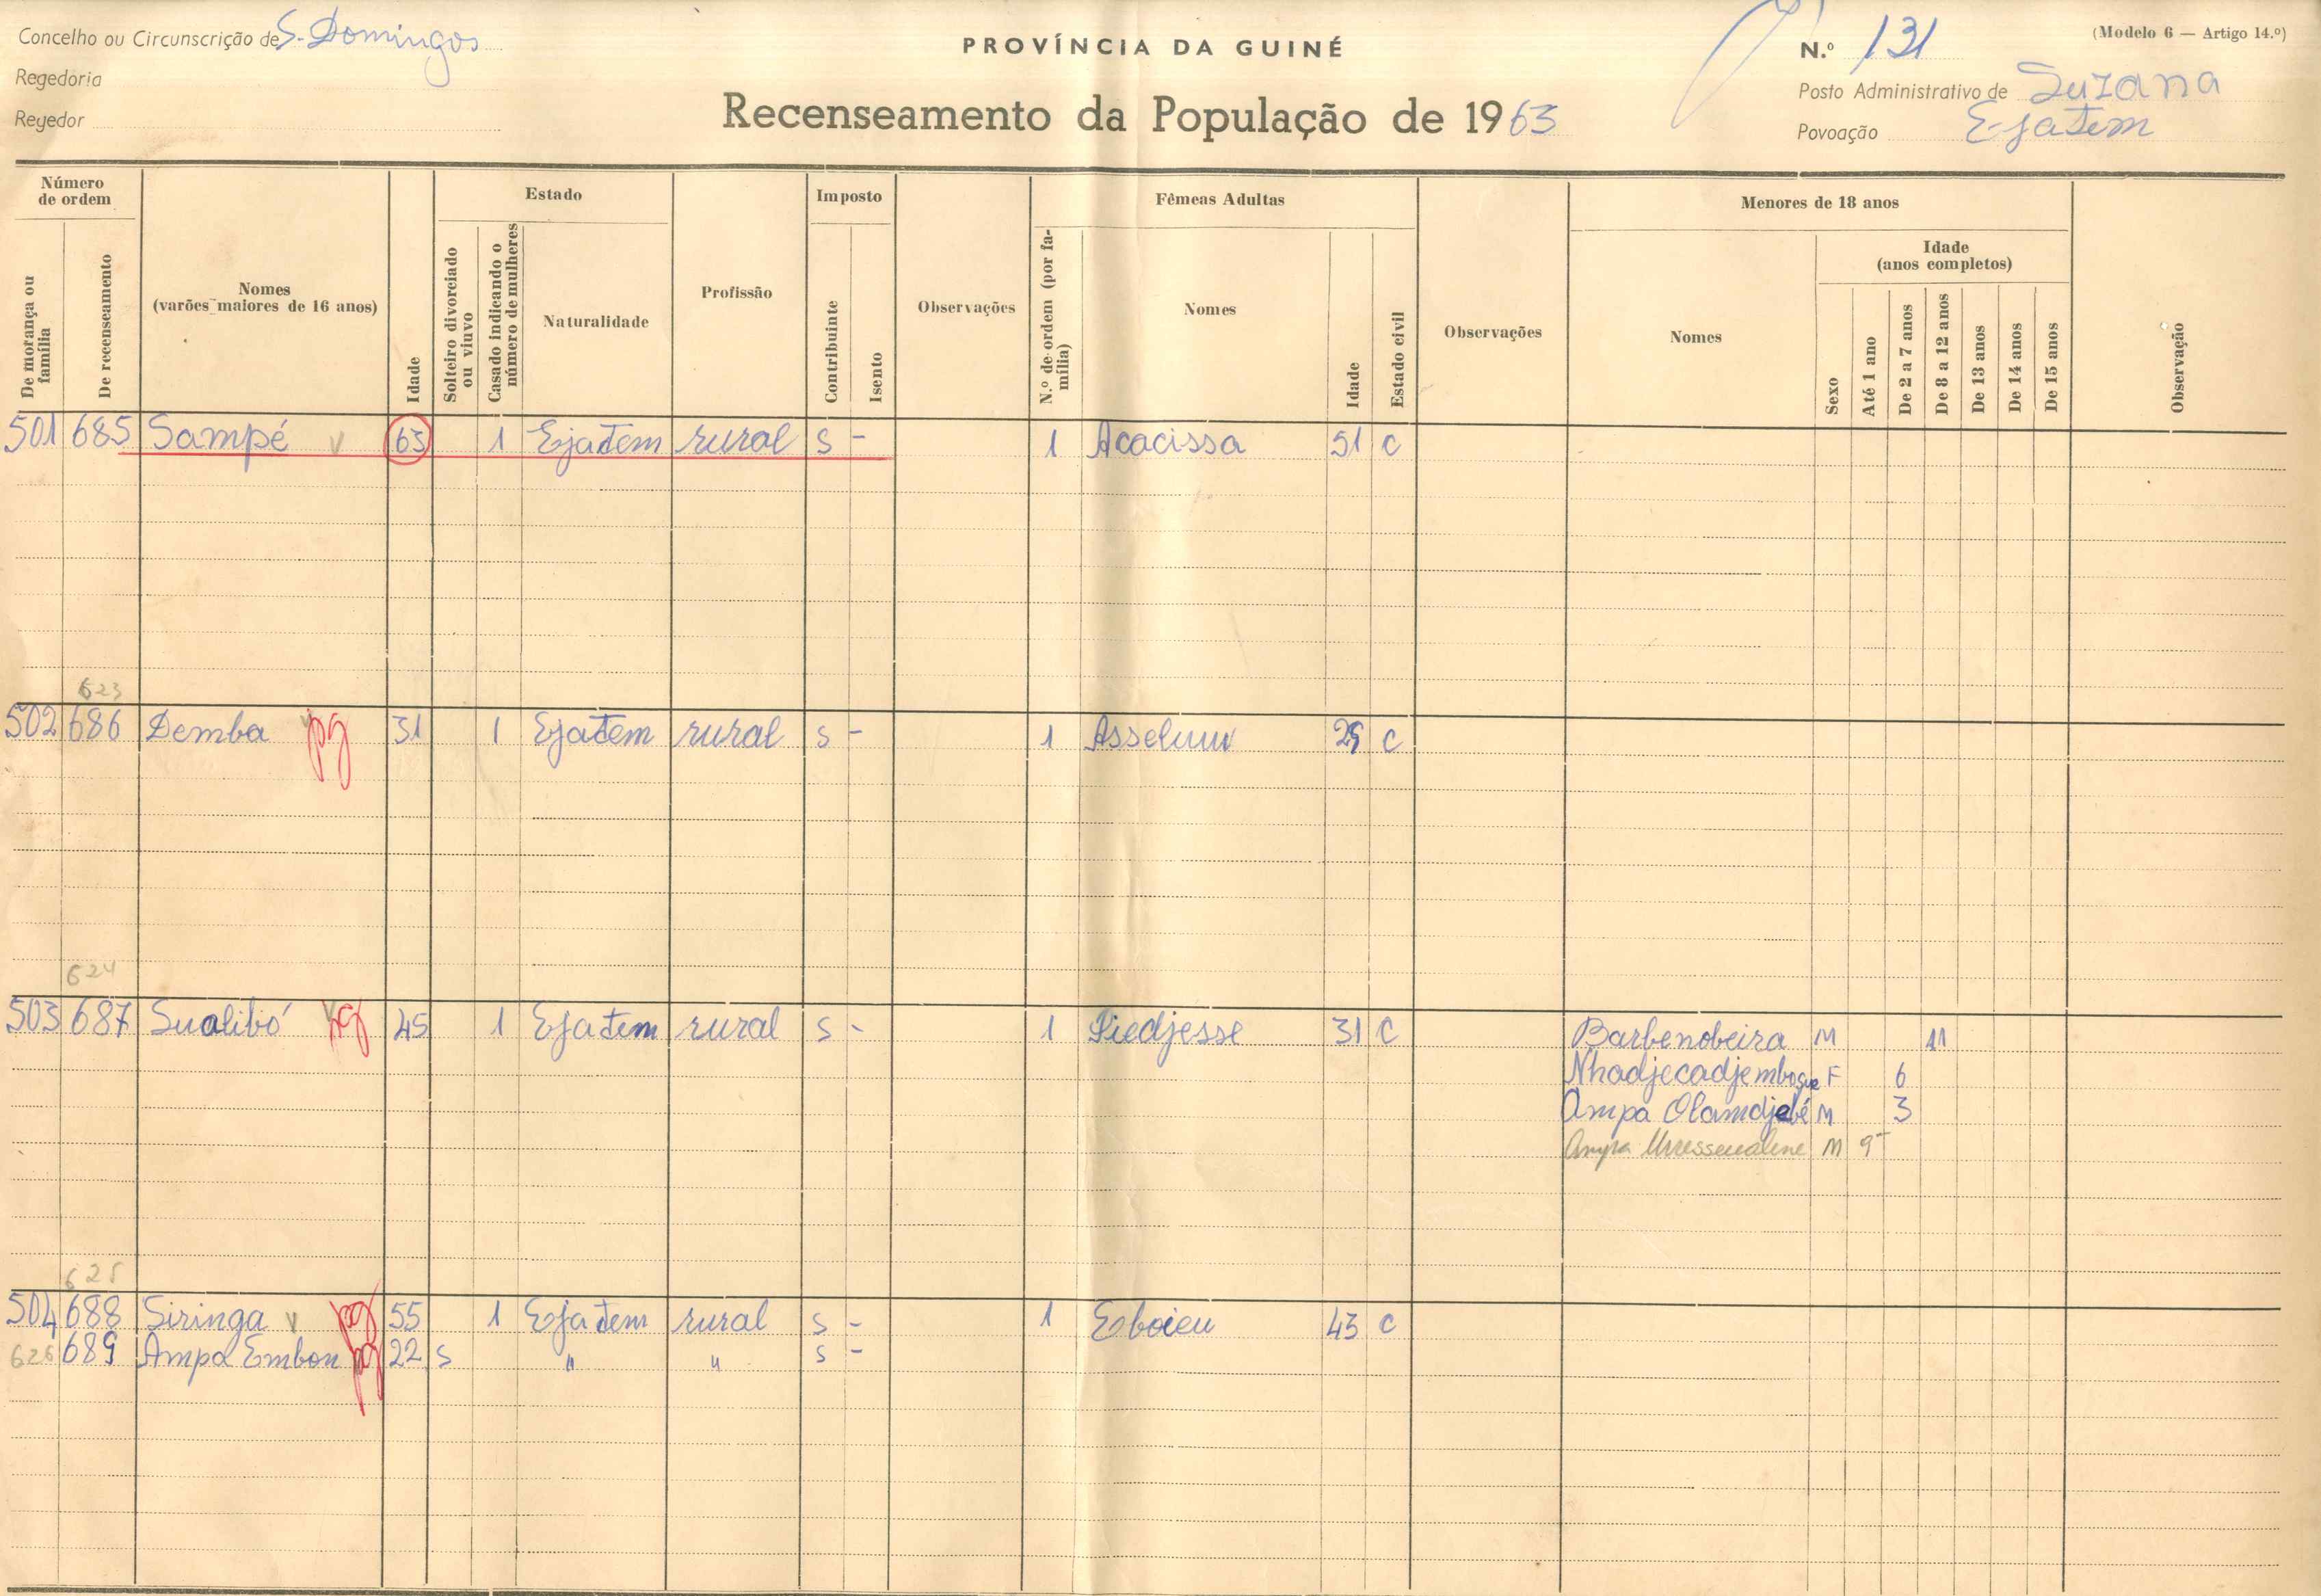 Concelho ou Circunscrição de S. Domingos
Regedoria
Regedor
PROVÍNCIA DA GUINÉ
Recenseamento da População de 1963
(Modelo 6 — Artigo 14.º)
N.º 131
Posto Administrativo de Suzana
Povoação E-jatem
Número de ordem
De morança ou família
De recenseamento
Nomes
(varões maiores de 16 anos)
Idade
Estado
Solteiro divorciado ou viuvo
Casado indicando o número de mulheres
Naturalidade
Profissão
Imposto
Contribuinte
Isento
Observações
Fêmeas Adultas
N.º de ordem (por família)
Nomes
Idade
Estado civil
Observações
Menores de 18 anos
Nomes
Sexo
Idade
(anos completos)
Até 1 ano
De 2 a 7 anos
De 8 a 12 anos
De 13 anos
De 14 anos
De 15 anos
Observação
501 685 Sampé v 63 1 Ejatem rural s - 1 Acacissa 51 c
623
502 686 Demba v pg 31 1 Ejatem rural s - 1 Asselum 29 c
624
503 687 Sualibó v pg 45 1 Ejatem rural s - 1 Siedjesse 31 c Barbenobeira M 11
Nhadjecadjemboque F 6
Ampa Olamdjebé M 3
Ampa M 9-
625
504 688 Siringa v pg 55 1 Ejatem rural s - 1 Eboieu 43 c
626 689 Ampa Embon pg 22 s " " s -